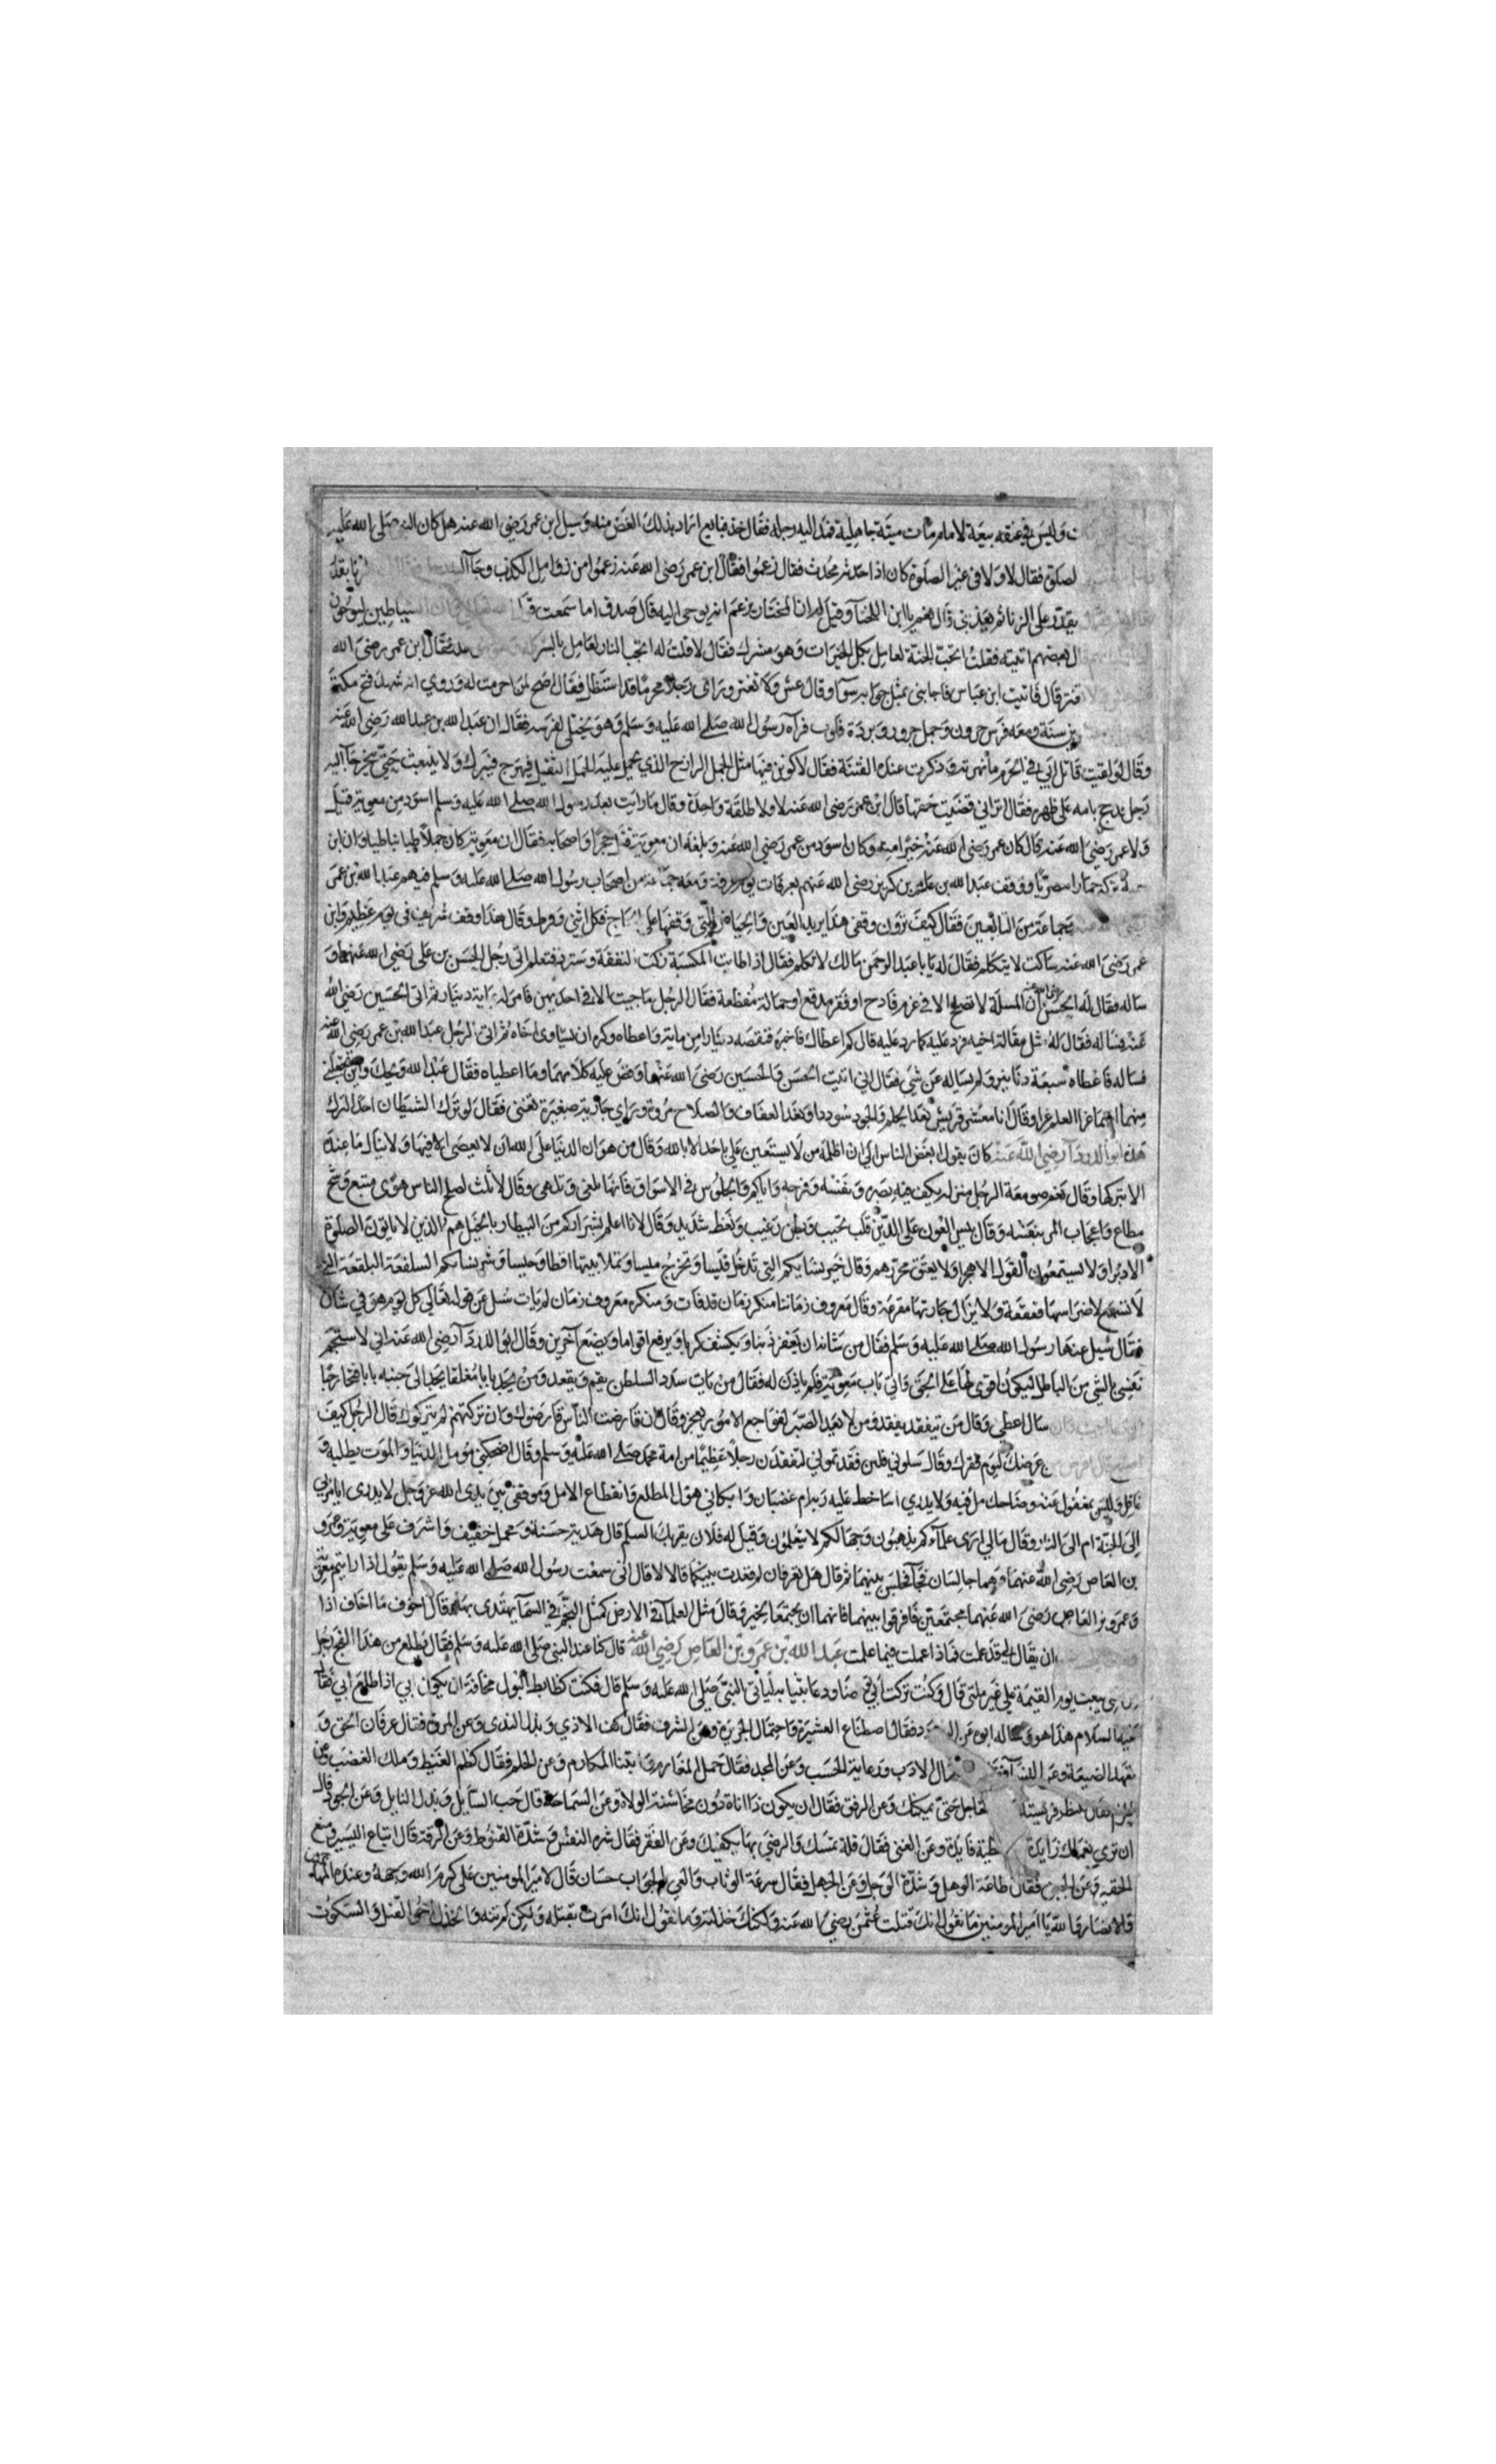 وليس في عنقه بيعة لامام مات ميتة جاهلية فمد اليه رجله فقال خذ فبايع اراد بذلك الغض منه وسيل ابن عمر رضي الله عنه هل كان النبي صلى الله عليه
لصلوة فقال لا ولا في غير الصلوة كان اذا حدثه محدث فقال زعموا فقال ابن عمر رضي الله عنه زعموا من زوامل الكذب وجاآ
يقدر على الزنا ثم يعذبني قال نعم يا ابن اللخنآ وقيل له ان المختار يزعم انه يوحى اليه قال صدق اما سمعت
بعضهم اتيته فقلت اتجب الجنة لعامل بكل الخيرات وهو مشرك فقال لا قلت له اتجب النار لعامل بالشر فقال ابن عمر رضي الله
قال فاتيت ابن عباس فاجابني بمثل جوابه سوآ وقال عش ولا تغتر وراى رجلا محرما قد استظل فقال اضح لمن احرمت له وروي انه شهد فتح مكة
سنة ومعه فرس حرون وجمل جرور وبردة فلوت فرآه رسول الله صلى الله عليه وسلم وهو يختلى لفرسه فقال ان عبد الله بن عبد الله رضي الله عنه
وقال لو لقيت قاتل ابي في الحرم ما نهرته وذكرت عنده الفتنة فقال لاكونن فيها مثل الجمل الرازح الذي يحمل عليه الحمل الثقيل فيهرج فيبرك ولا ينبعث حتى ينحر جآ اليه
رجل يحج بامه على ظهره فقال اتراني قضيت حقها قال ابن عمر رضي الله عنه لا ولا طلقة واحدة وقال ما رايت بعد رسول الله صلى الله عليه وسلم اسود من معوية قيل
ولا عمر رضي الله عنه قال كان عمر رضي الله عنه خيرا منه وكان اسود من عمر رضي الله عنه وبلغه ان معوية قتل حجرا واصحابه فقال ان معوية كان جملا
ووقف عبد الله بن عامر بن كريز رضي الله عنهم بعرفات يوم عرفة ومعه جماعة من اصحاب رسول الله صلى الله عليه وسلم فيهم عبد الله بن عمر
وجماعة من التابعين فقال كيف ترون وقفي هذا يريد العين والحياض التي وقفها على الحاج فكل اثني وفرط وقال هذا وقف شريف في يوم عظيم وابن
عمر رضي الله عنه ساكت لا يتكلم فقال له يا با عبد الرحمن مالك لا تكلم فقال اذا طابت المكسبة زكت النفقة وسترد فتعلم اتى رجل الحسن بن علي رضي الله عنهما و
ساله فقال له الحسن رضي الله عنه ان المسلة لا تصلح الا في غرم فادح او فقر مدقع او حمالة مفظعة فقال الرجل ما جيت الا في احديهن فامر له بماية دينار ثم اتى الحسين رضي الله
عنه فساله فقال له مثل مقالة اخيه فرد عليه كما رد عليه قال كم اعطاك فاخبره فنقصه دينارا من ماية واعطاه وكره ان يساوى اخاه ثم اتى الرجل عبد الله بن عمر رضي الله عنه
فساله فاعطاه سبعة دنانير ولم يساله عن شي فقال اني اتيت الحسن والحسين رضي الله عنهما وقص عليه كلامهما وما اعطياه فقال عبد الله ويحك واين تجعلني
منهما انهما غرا العلم غرا وقال انا معشر قريش نعد الحلم والجود سوددا ونعد العفاف والصلاح مروة وراي جارية صغيرة تغني فقال لو ترك الشيطان احدا لترك
هذه ابو الدردآ رضي الله عنه كان يقول ابغض الناس الي ان اظلمه من لا يستعين علي باحد الا بالله وقال من هوان الدنيا على الله ان لا يعصى الا فيها ولا ينال ما عنده
الا بتركها وقال نعم صومعة الرجل منزله يكف فيه بصره ونفسه وفرجه واياكم والجلوس في الاسواق فانها تلغي وتلهى وقال ثلث لصلح الناس هوى متبع وشح
مطاع واعجاب المر بنفسه وقال بيس العون على الدين قلب نخيب وبطن رغيب ونعظ شديد وقال لانا اعلم بشراركم من البيطار بالخيل هم الذين لا ياتون الصلوة
الا دبرا ولا يستمعون القول الا هجرا ولا يعتق محررهم وقال خير نسايكم التي تدخل قيسا وتخرج ميسا وتملا بيتها اقطا وحيسا وشر نسايكم السلفعة البلقعة التي
لا تسمع لاضراسها قعقعة ولا يزال جارتها مفزعة وقال معروف زماننا منكر زمان قد فات ومنكره معروف زمان لم يات سيل عن قوله تعالى كل يوم هو في شان
فقال سيل عنها رسول الله صلى الله عليه وسلم فقال من شانه ان يغفر ذنبا ويكشف كربا ويرفع اقواما ويضع آخرين وقال ابو الدردآ رضي الله عنه اني لاستجم
نفسي بالشي من الباطل ليكون اقوى لها على الحق واتى باب معوية فلم ياذن له فقال من يات سدد السلطن يقم ويقعد ومن يجد بابا مغلقا يجد الى جنبه بابا فتحا رحبا
سال اعطي وقال من يتفقد يفقد ومن لا يعد الصبر لفواجع الامور يعجز وقال ان قارضت الناس قارضوك وان تركتهم لم يتركوك قال الرجل كيف
من عرضك ليوم فقرك وقال سلوني فلين فقد تموني لتفقدن رجلا عظيما من امة محمد صلى الله عليه وسلم وقال اضحكني مومل الدنيا والموت يطلبه و
غافل وليس بمغفول عنه وضاحك مل فيه ولا يدري اساخط عليه ربه ام غضبان وابكاني هول المطلع وانقطاع الامل وموقفي بين يدي الله عز وجل لا يدرى ايامر بي
الى الجنة ام الى النار وقال مالي ارى علمآكم يذهبون وجهالكم لا يعلمون وقيل له فلان يقريك السلم قال هدية حسنة ومحمل خفيف واشرف على معوية وعمرو
بن العاص رضي الله عنهما وهما جالسان فجآ فجلس بينهما ثم قال هل تعرفان لم قعدت بينكما قالا لا قال اني سمعت رسول الله صلى الله عليه وسلم يقول اذا رايتم معوية
وعمرو بن العاص رضي الله عنهما مجتمعين فافرقوا بينهما فانهما ان يجتمعا بخير وقال مثل العلمآ في الارض كمثل النجم في السمآ يهتدى بها وقال اخوف ما اخاف اذا
ان يقال لي قد علمت فماذا عملت فيما علمت عبد الله بن عمرو بن العاص رضي الله عنه قال كنا عند النبي صلى الله عليه وسلم فقال يطلع من هذا الفج رجل
يبعث يوم القيمة على غير ملتي قال وكنت تركت ابي ودعا بثيابه لياتي النبي صلى الله عليه وسلم قال فكنت كظابط البول مخافة ان يكون ابي اذا طلع ابي فقال
عليه السلام هذا هو وساله ابوه عن فقال اصطناع العشيرة واحتمال الجريرة وعن الشرف فقال كف الاذي وبذل الندى وعن المروة فقال عرفان الحق و
تعهد الضيعة وعن الادب ورعاية الحسب وعن المجد فقال حمل المغارم وابتنا المكارم وعن الحلم فقال كظم الغيظ وملك الغضب وعن
الحزم فقال تنتظر فريستك حتى تمكنك وعن الرفق فقال ان يكون ذا اناة دون مخاشنة الولاة وعن السماحة قال حب السايل وبذل النايل وعن الجود قال
ان ترى نعمتك زايدة فايدة وعن الغنى فقال قلة تمنيك والرضي بما يكفيك وعن الفقر فقال شره النفس وشدة القنوط وعن الرقة قال اتباع اليسير ومنع
الحقير وعن الجبن فقال طاعة الوهل وشدة الوجل وعن الجهل فقال سرعة الوثاب والعي بالجواب حسان قال لامير المومنين علي كرم الله وجهه وعنده المهاجرون
والانصار والله يا امير المومنين ما نقول انك قتلت عثمن رضي الله عنه ولكنك خذلته وما نقول انك امرت بقتله ولكن لم تنه والخذل اخو القتل والسكوت